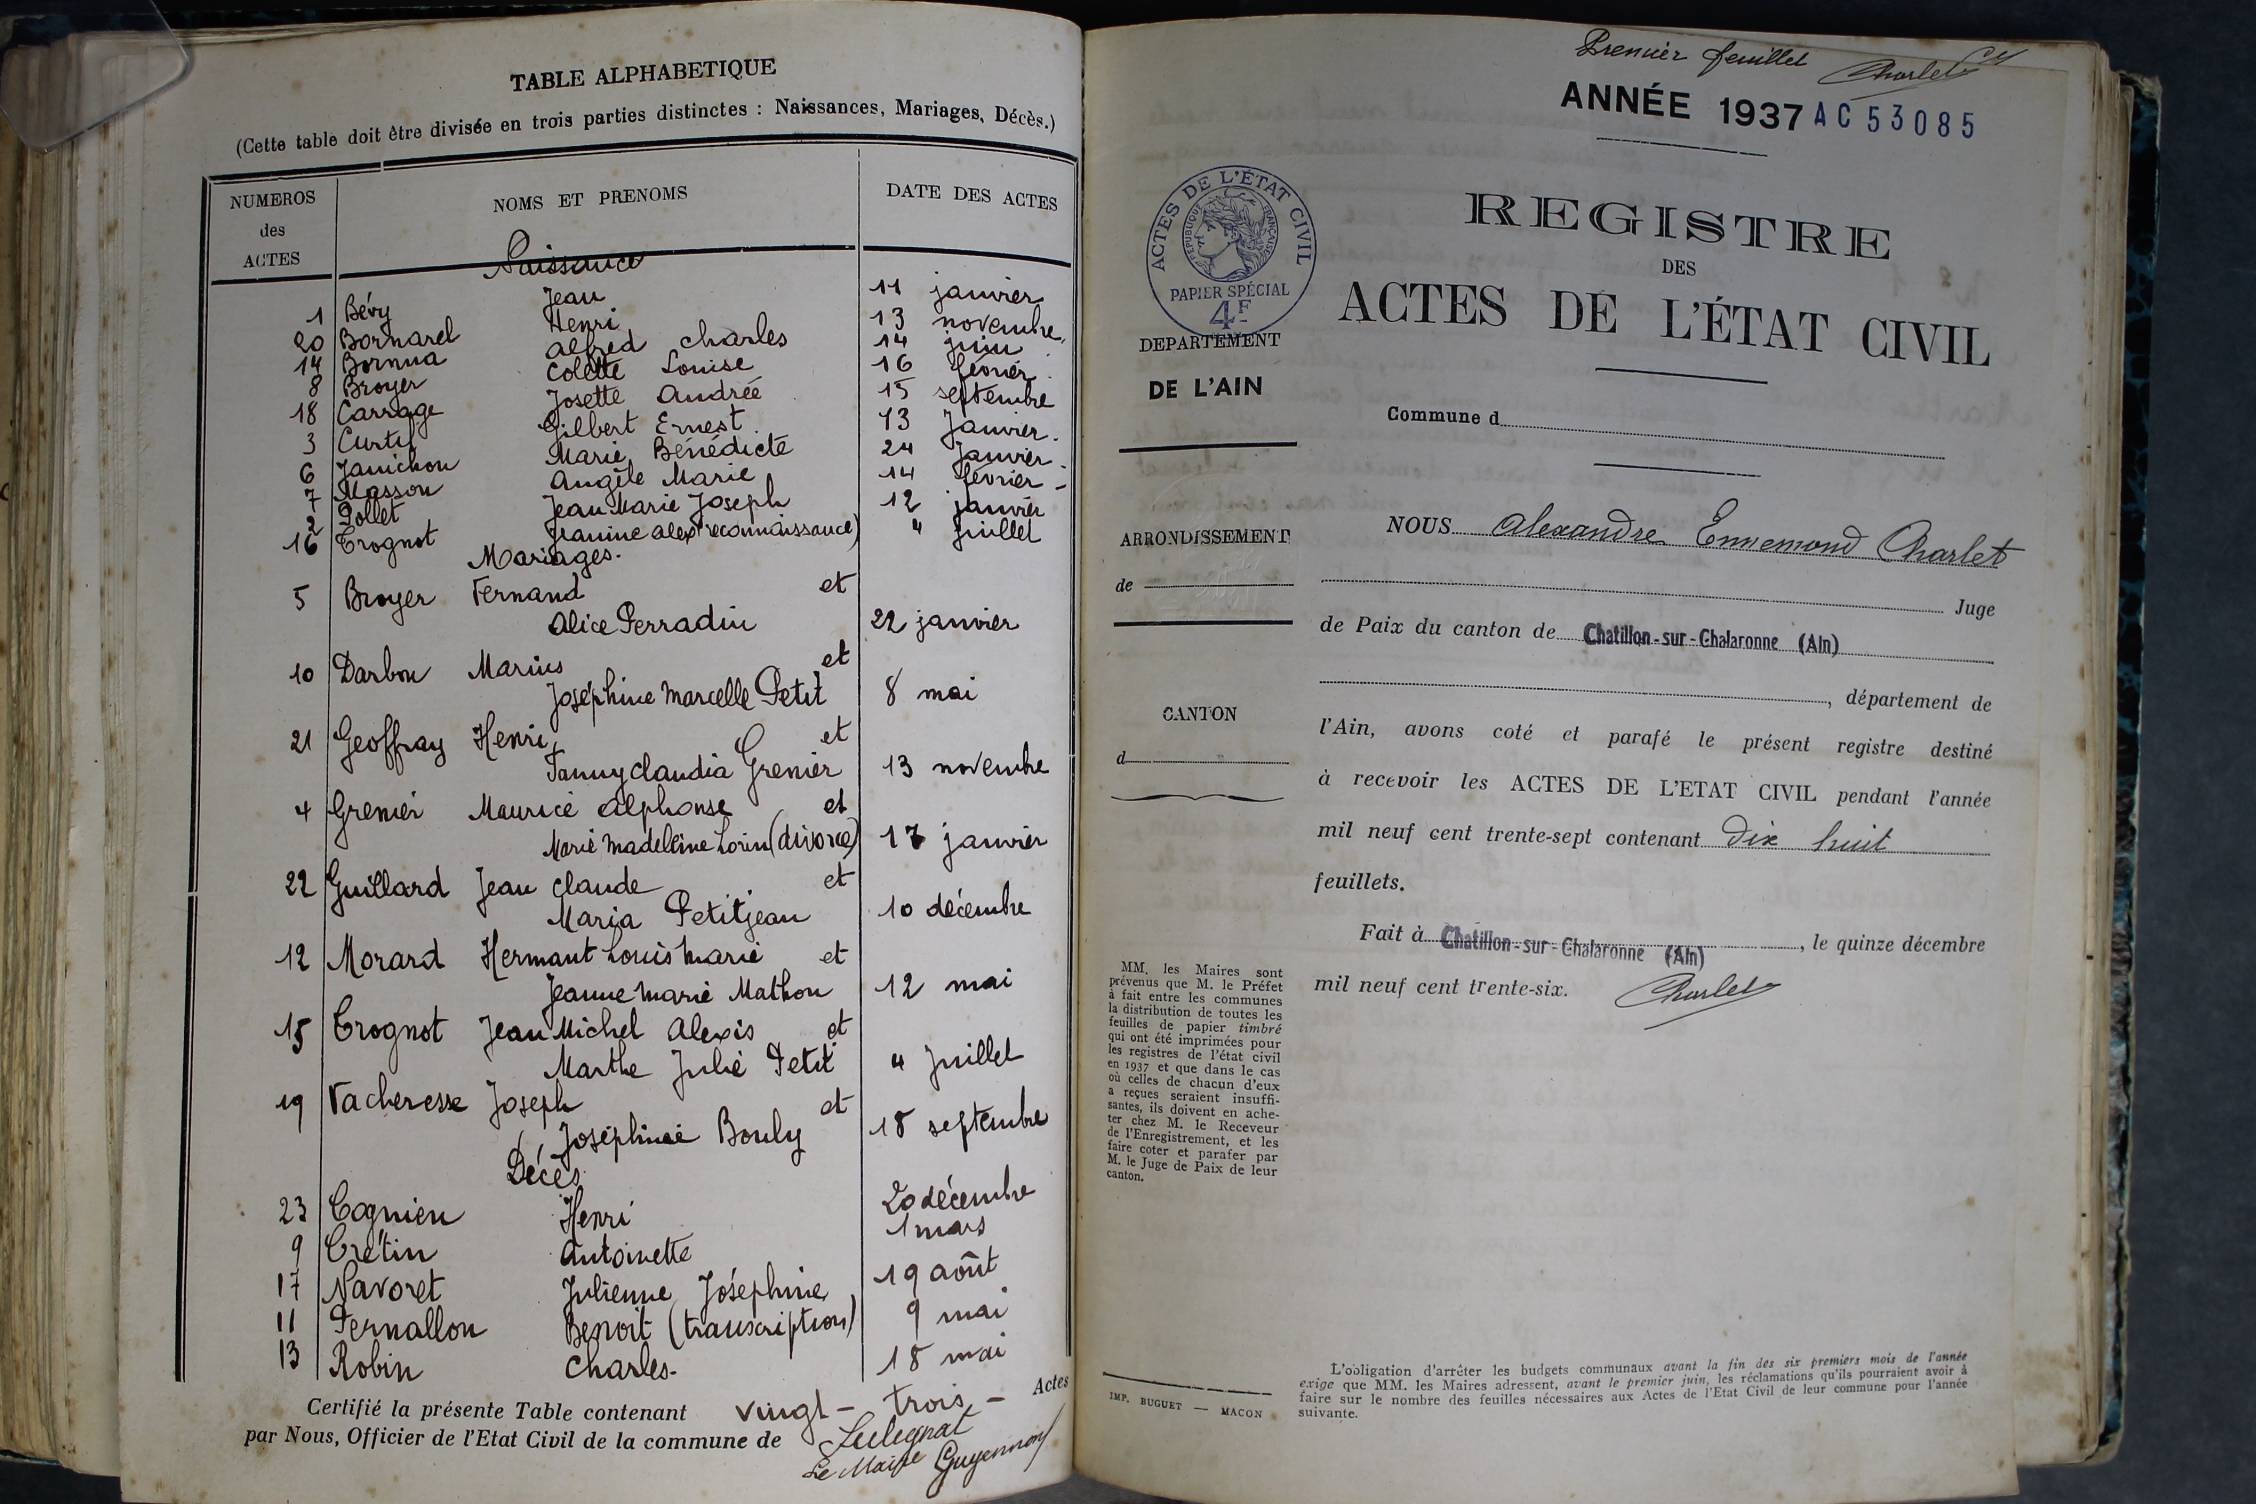 TABLE ALPHABETIQUE
(Cette table doit être divisée en trois parties distinctes : Naissances, Mariages, Décès.)
NUMEROS des ACTES NOMS ET PRENOMS DATE DES ACTES
Naissance
1 Bévy Jean 11 janvier
20 Bornarel Henri 13 novembre
14 Bornua Alfred Charles 14 juin
8 Broyer Colette Louise 16 février
18 Carrage Josette Andrée 15 septembre
3 Curty Gilbert Ernest 13 Janvier
6 Janichon Marie Bénédicte 24 Janvier
7 Masson Angèle Marie 14 février
2 Pollet Jean Marie Joseph 12 janvier
16 Trognot Jeanine Alex (reconnaissance) 4 Juillet
Mariages.
5 Broyer Fernand et
Alice Perradin 22 janvier
10 Darbon Marius et
Joséphine Marcelle Petit 8 mai
21 Geoffray Henri et
Fanny Claudia Grenier 13 novembre
4 Grenier Maurice Alphonse et
Marie Madeleine Lorin (divorce) 17 janvier
22 Guillard Jean Claude et
Maria Petitjean 10 décembre
12 Morard Hermant Louis Marie et
Jeanne Marie Mathon 12 mai
15 Trognot Jean Michel Alexis et
Marthe Julie Petit 4 Juillet
19 Vacheresse Joseph et
Joséphine Bouly 18 septembre
Décès
23 Cognieu Henri 20 décembre
9 Crétin Antoinette 1 mars
17 Navoret Julienne Joséphine 19 août
11 Pernallon Benoit (transcription) 9 mai
13 Robin Charles. 18 mai
Certifié la présente Table contenant vingt-trois - Actes
par Nous, Officier de l'Etat Civil de la commune de Sulignat
Le Maire Guyennon
Premier feuillet Charlet
ANNÉE 1937 AC53085
ACTES DE L'ÉTAT CIVIL
RÉPUBLIQUE FRANÇAISE
PAPIER SPÉCIAL
4F
REGISTRE
DES
ACTES DE L'ÉTAT CIVIL
DEPARTEMENT
DE L'AIN
Commune d
ARRONDISSEMENT
de
CANTON
d
NOUS Alexandre Ennemond Charlet
Juge
de Paix du canton de Chatillon-sur-Chalaronne (Ain)
, département de
l'Ain, avons coté et parafé le présent registre destiné
à recevoir les ACTES DE L'ETAT CIVIL pendant l'année
mil neuf cent trente-sept contenant dix huit
feuillets.
Fait à Chatillon-sur-Chalaronne (Ain), le quinze décembre
mil neuf cent trente-six. Charlet
MM. les Maires sont
prévenus que M. le Préfet
à fait entre les communes
la distribution de toutes les
feuilles de papier timbré
qui ont été imprimées pour
les registres de l'état civil
en 1937 et que dans le cas
où celles de chacun d'eux
a reçues seraient insuffi-
santes, ils doivent en ache-
ter chez M. le Receveur
de l'Enregistrement, et les
faire coter et parafer par
M. le Juge de Paix de leur
canton.
IMP. BUGUET — MACON
L'obligation d'arrêter les budgets communaux avant la fin des six premiers mois de l'année
exige que MM. les Maires adressent, avant le premier juin, les réclamations qu'ils pourraient avoir à
faire sur le nombre des feuilles nécessaires aux Actes de l'Etat Civil de leur commune pour l'année
suivante.